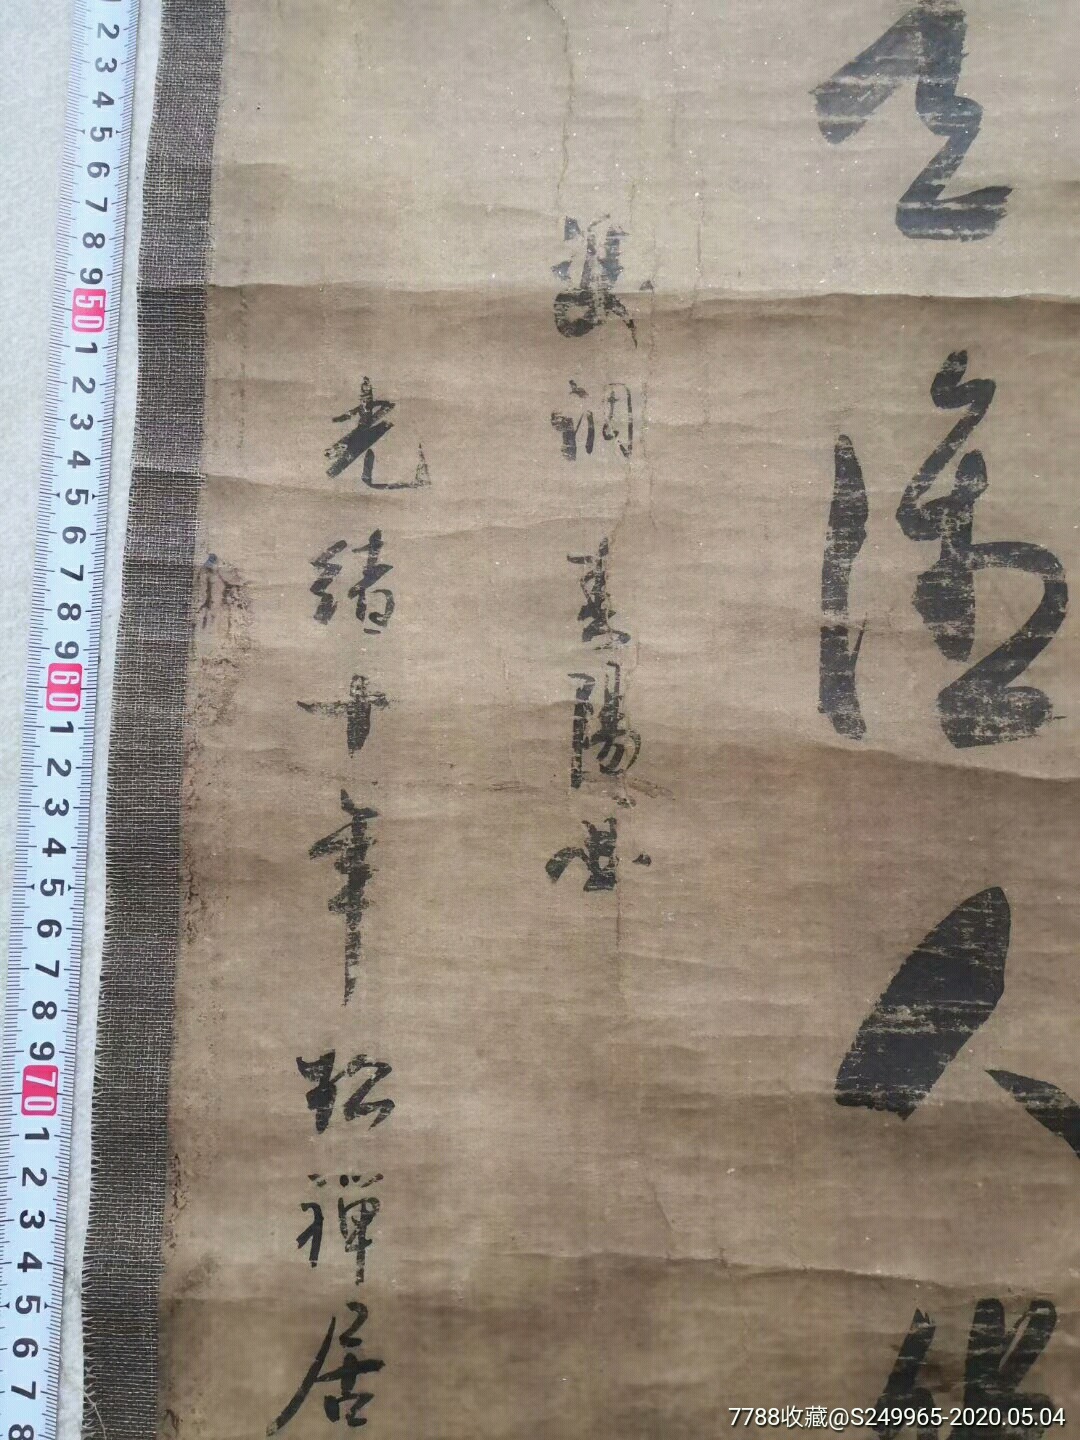 人
雙調壽陽曲
光緒十年松禪居
2 3 4 5 6 7 8 9 50 1 2 3 4 5 6 7 8 9 60 1 2 3 4 5 6 7 8 9 70 1 2 3 4 5 6 7 8
7788收藏@S249965-2020.05.04